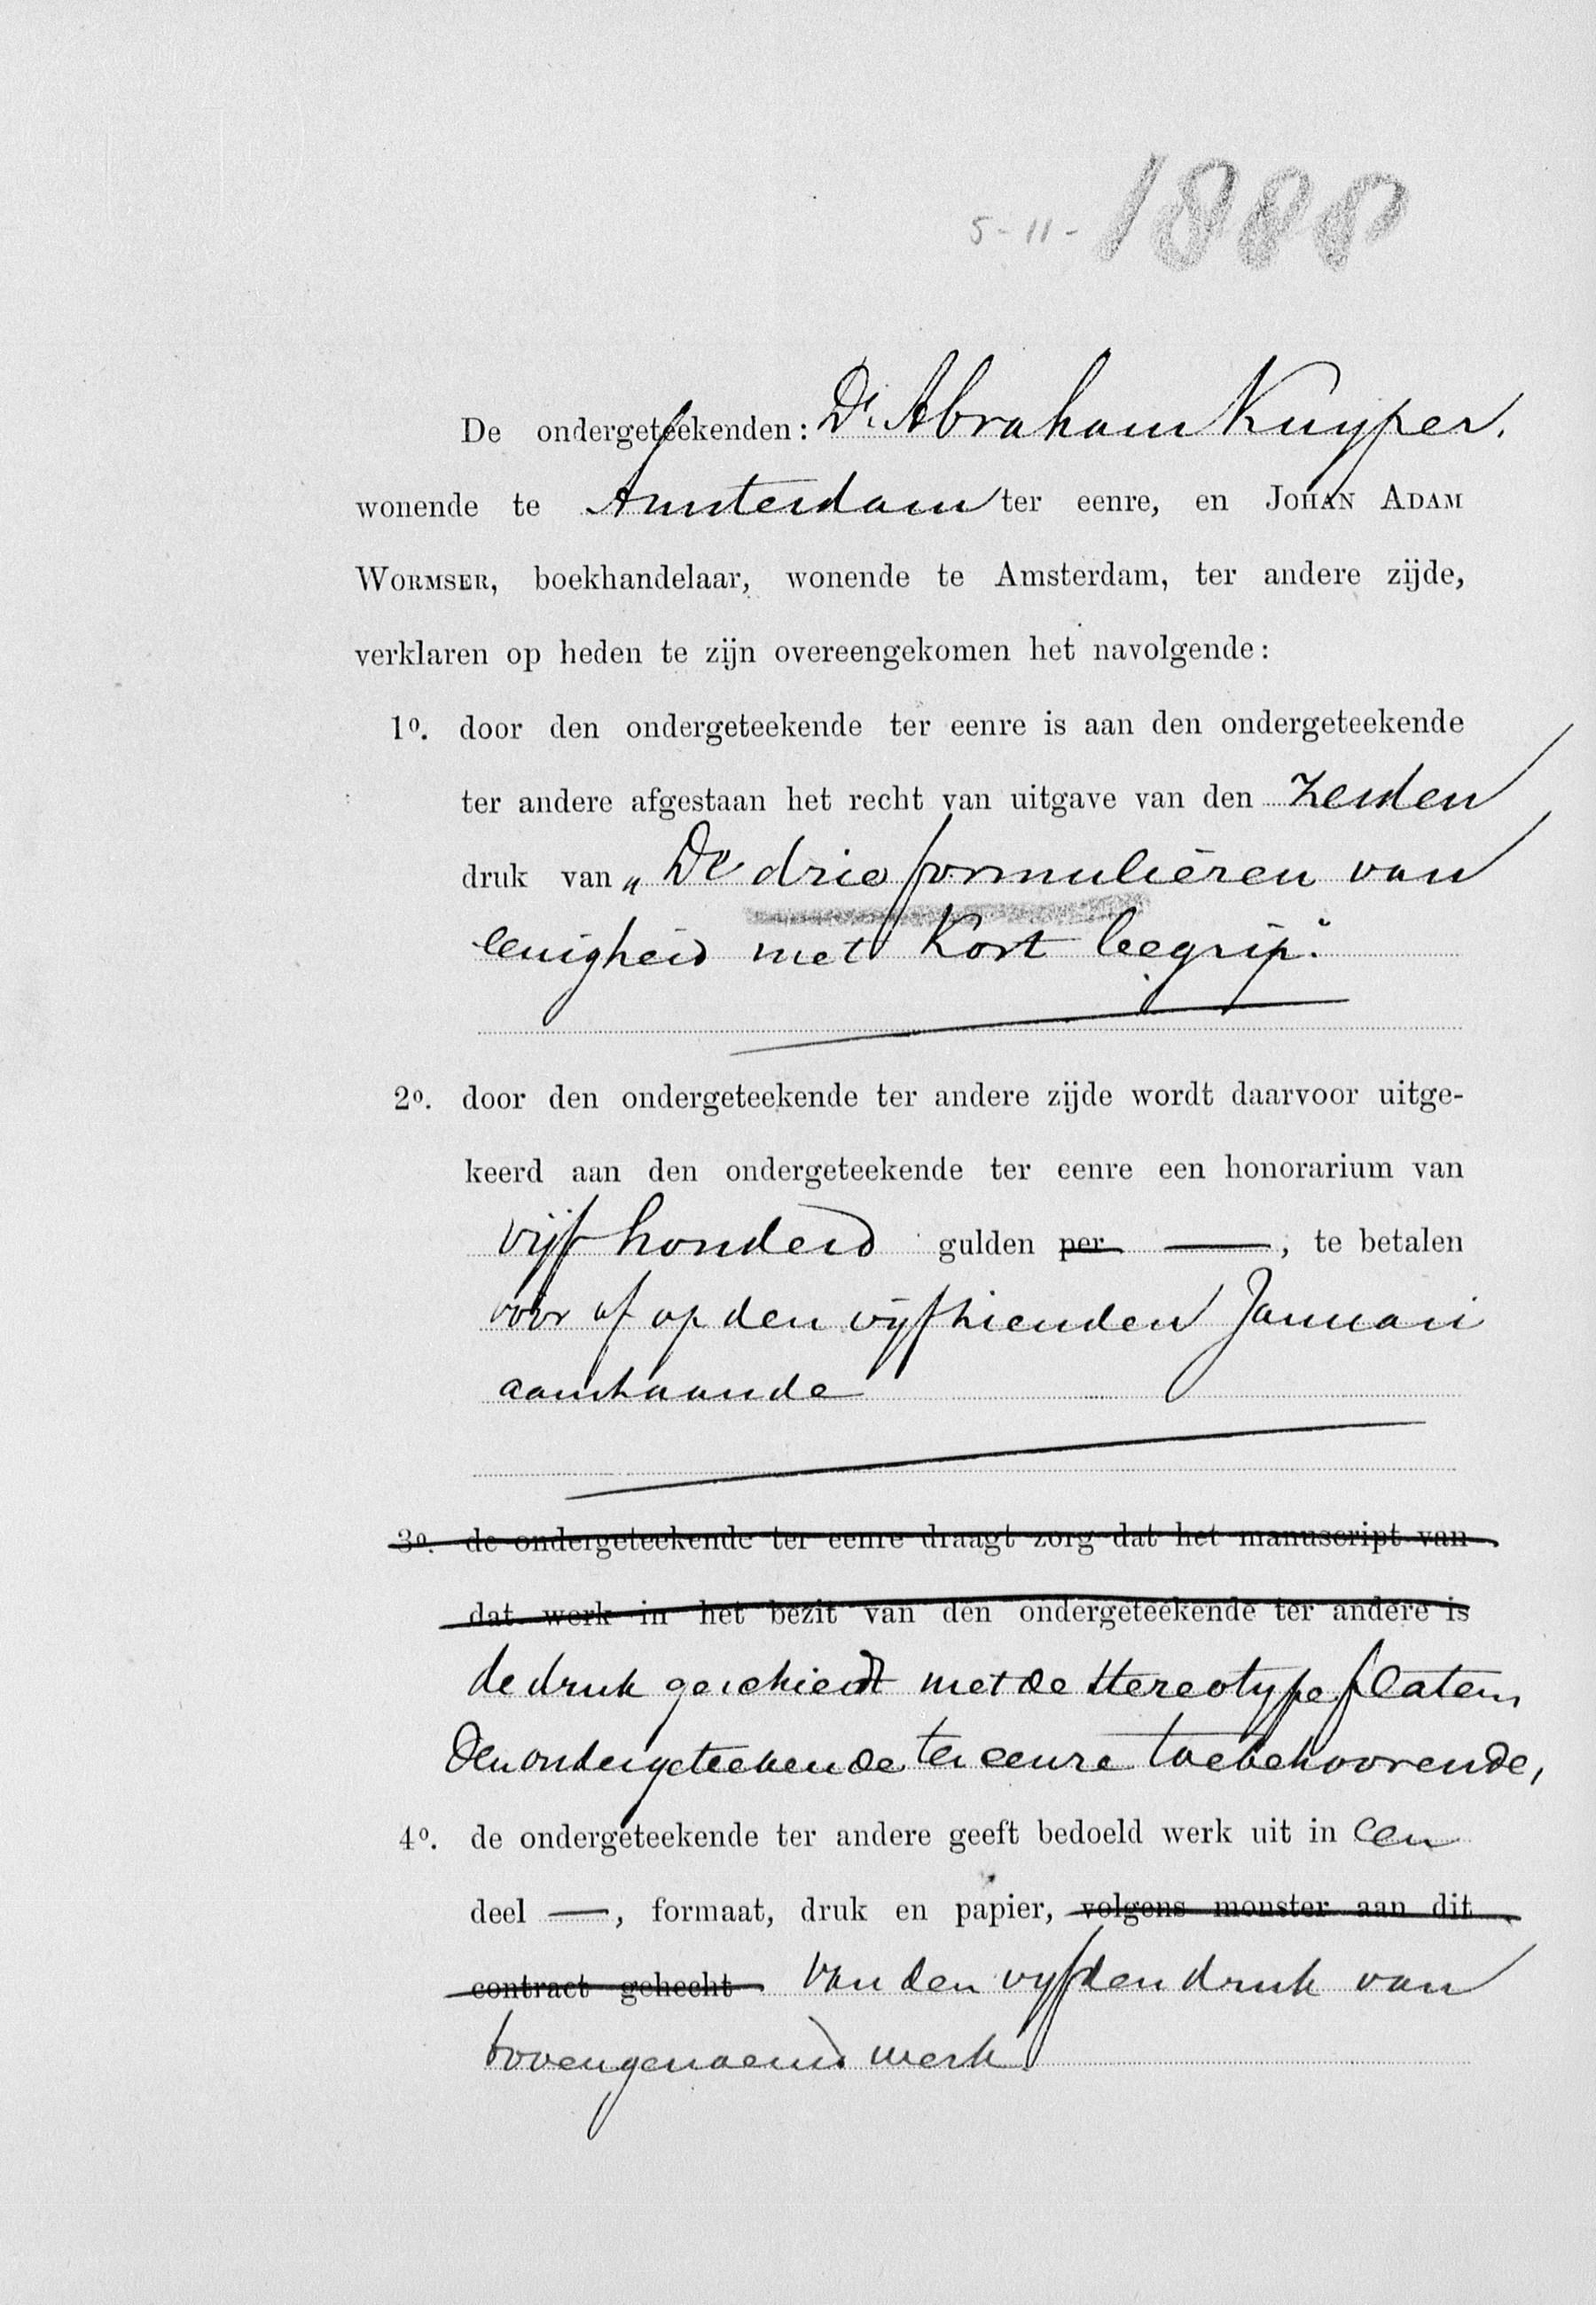 5-11-1888
De ondergeteekenden: Dr. Abraham Kuyper.
wonende te Amsterdam ter eenre, en JOHAN ADAM
WORMSER, boekhandelaar, wonende te Amsterdam, ter andere zijde,
verklaren op heden te zijn overeengekomen het navolgende:
1º. door den ondergeteekende ter eenre is aan den ondergeteekende
ter andere afgestaan het recht van uitgave van den zesden
druk van „De drie formulieren van
eenigheid met Kort begrip."
2º. door den ondergeteekende ter andere zijde wordt daarvoor uitge-
keerd aan den ondergeteekende ter eenre een honorarium van
vijf honderd gulden per ——, te betalen
vóór of op den vijftienden Januari
aanstaande
3º. de ondergeteekende ter eenre draagt zorg dat het manuscript van
dat werk in het bezit van den ondergeteekende ter andere is
de druk geschiedt met de stereotypeplaten,
den ondergeteekende ter eenre toebehoorende,
4º. de ondergeteekende ter andere geeft bedoeld werk uit in een
deel —, formaat, druk en papier, volgens monster aan dit
contract gehecht van den vijfden druk van
bovengenoemd werk.